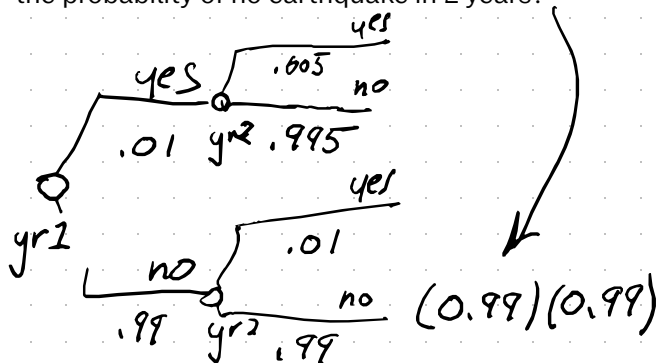 the probability of no earthquake in 2 years?
yes
.005
yes
no
.01
yr2
.995
yes
yr1
.01
no
no
(0.99)(0.99)
.99
yr2
.99